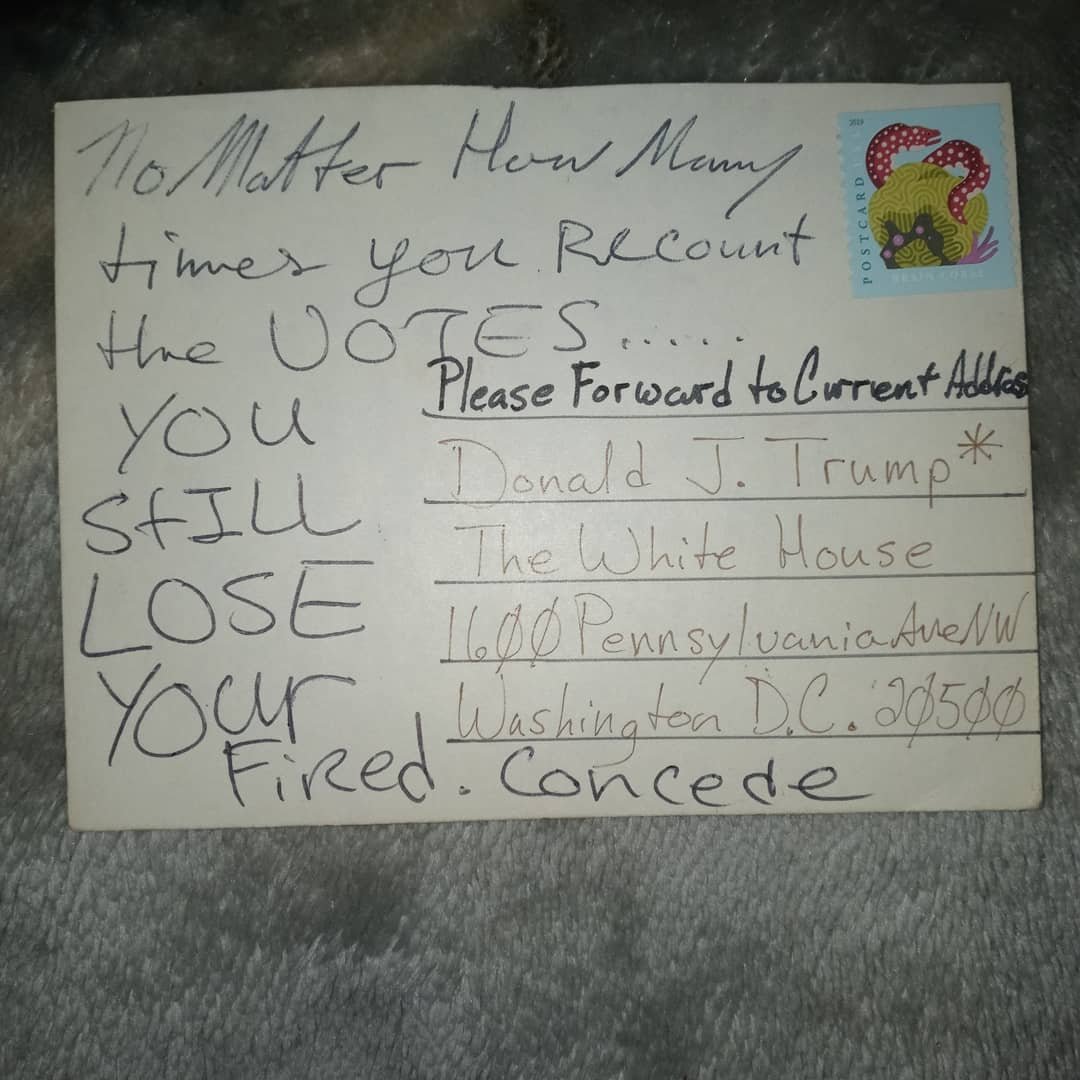 No Matter How Many
times you Recount
the VOTES.....
YOU
StILL
LOSE
YOUr
Fired. Concede
2019
POSTCARD
BRAIN CORAL
Please Forward to Current Address
Donald J. Trump*
The White House
1600 Pennsylvania Ave NW
Washington D.C. 20500